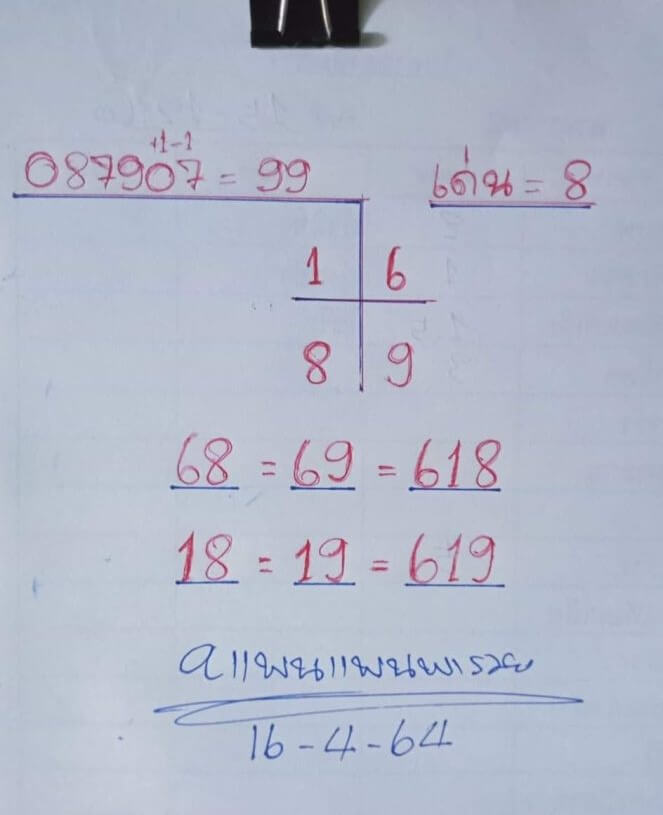 +1-1
087907 = 99
เด่น = 8
1 6
8 9
68 = 69 = 618
18 = 19 = 619
อ.แพนแพนพารวย
16-4-64